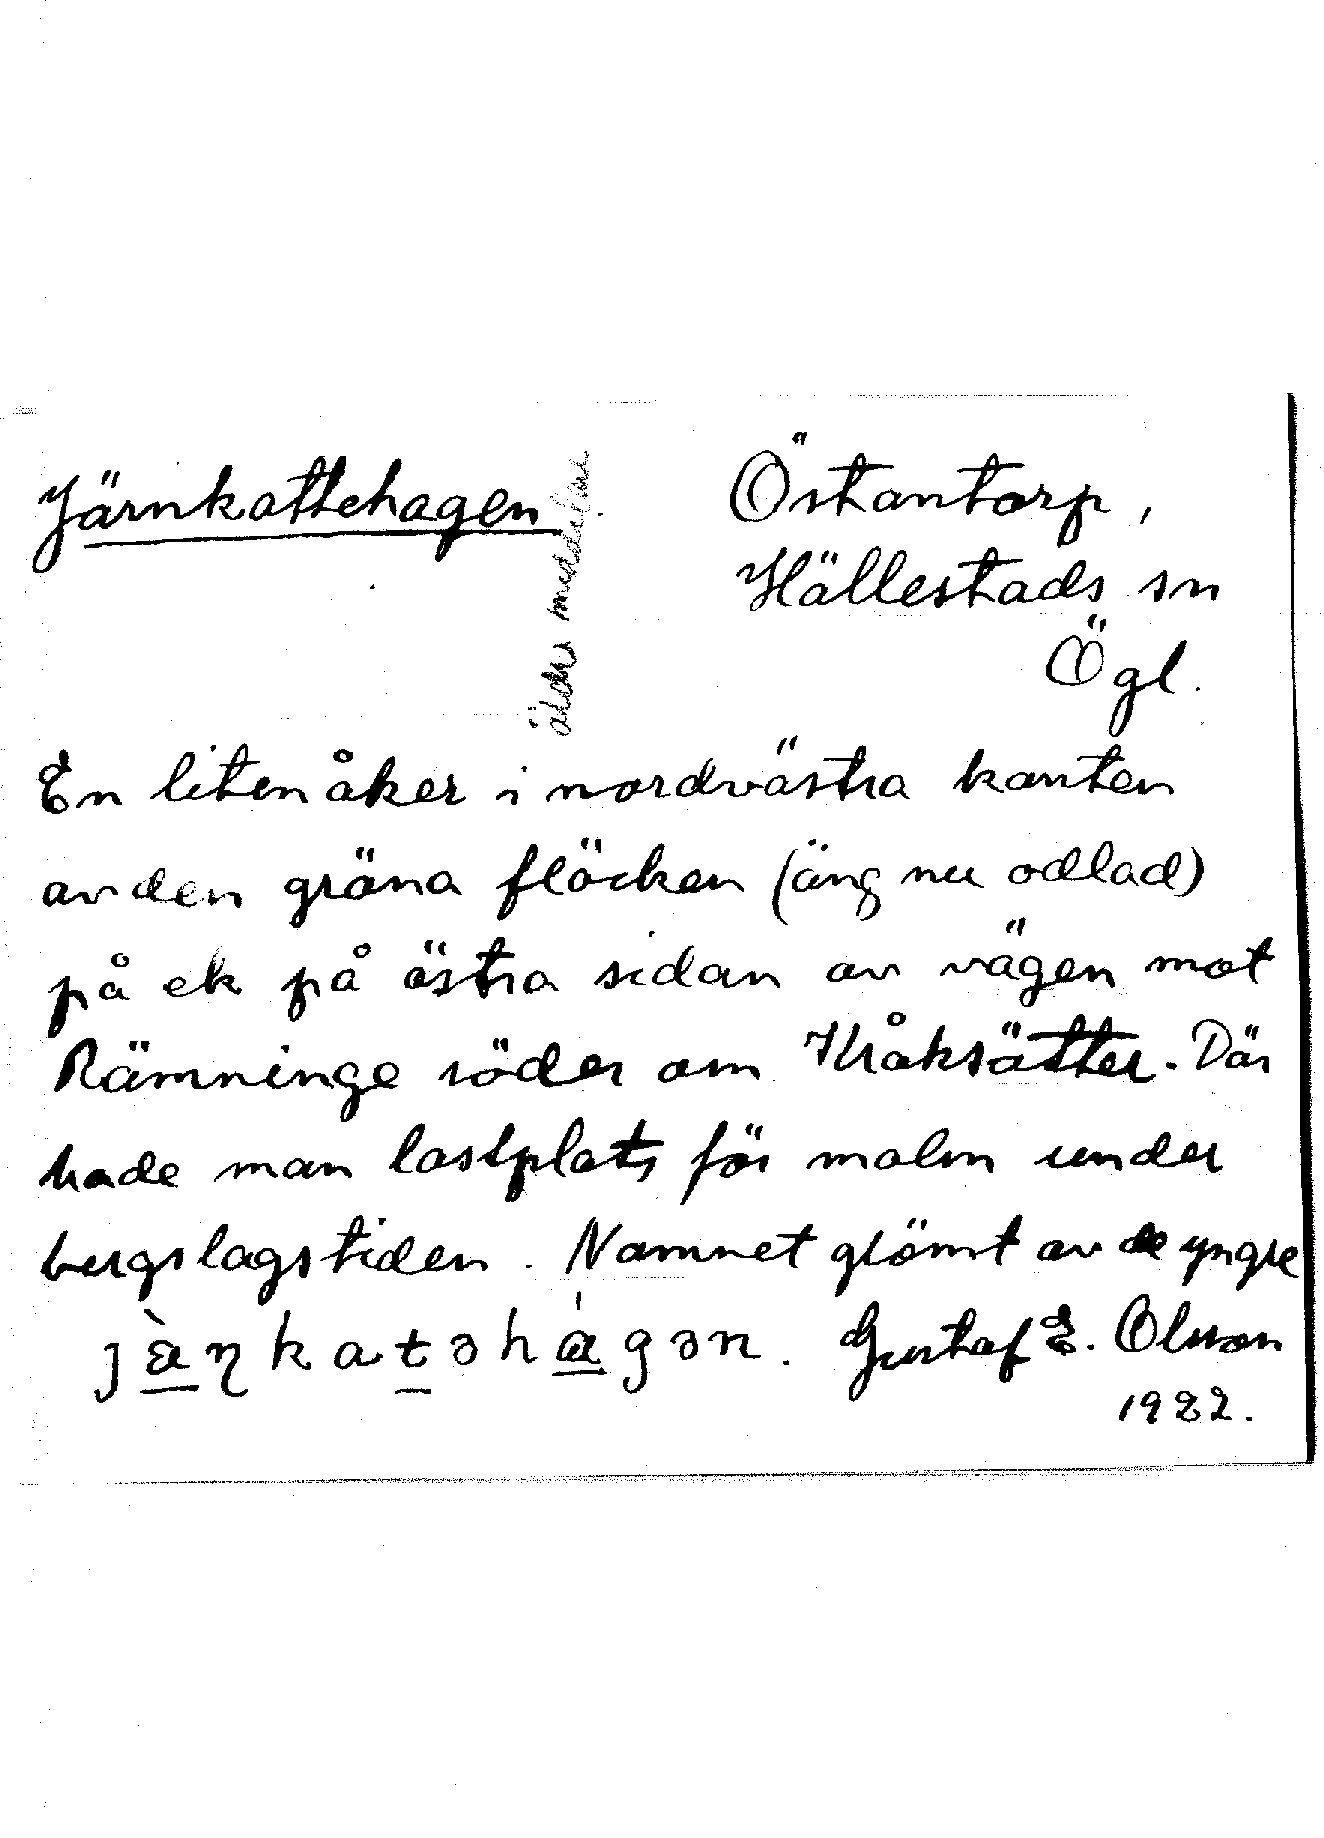 Järnkattehagen
Östantorp,
Hällestads sn
Ögl.
äldre meddelare
En liten åker i nordvästra kanten
av den gröna fläcken (äng nu odlad)
på ek på östra sidan av vägen mot
Rämninge söder om Kråksätter. Där
hade man lastplats för malm under
bergslagstiden. Namnet glömt av de yngre
jɛ̀ɳkatəhágən. Gustaf E. Olsson
1922.